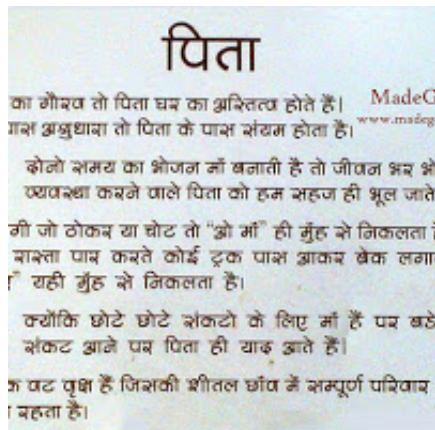 पिता
का गौरव तो पिता घर का अस्तित्व होते हैं।
MadeG
पास अश्रुधारा तो पिता के पास संयम होता है।
www.madeg
दोनो समय का भोजन माँ बनाती है तो जीवन भर भो
व्यवस्था करने वाले पिता को हम सहज ही भूल जाते
गी जो ठोकर या चोट तो "ओ माँ" ही मुँह से निकलता
रास्ता पार करते कोई ट्रक पास आकर ब्रेक लगा
" यही मुँह से निकलता है।
क्योंकि छोटे छोटे संकटो के लिए माँ हैं पर बडे
संकट आने पर पिता ही याद आते हैं।
क वट वृक्ष हैं जिसकी शीतल छाँव में सम्पूर्ण परिवार
रहता है।